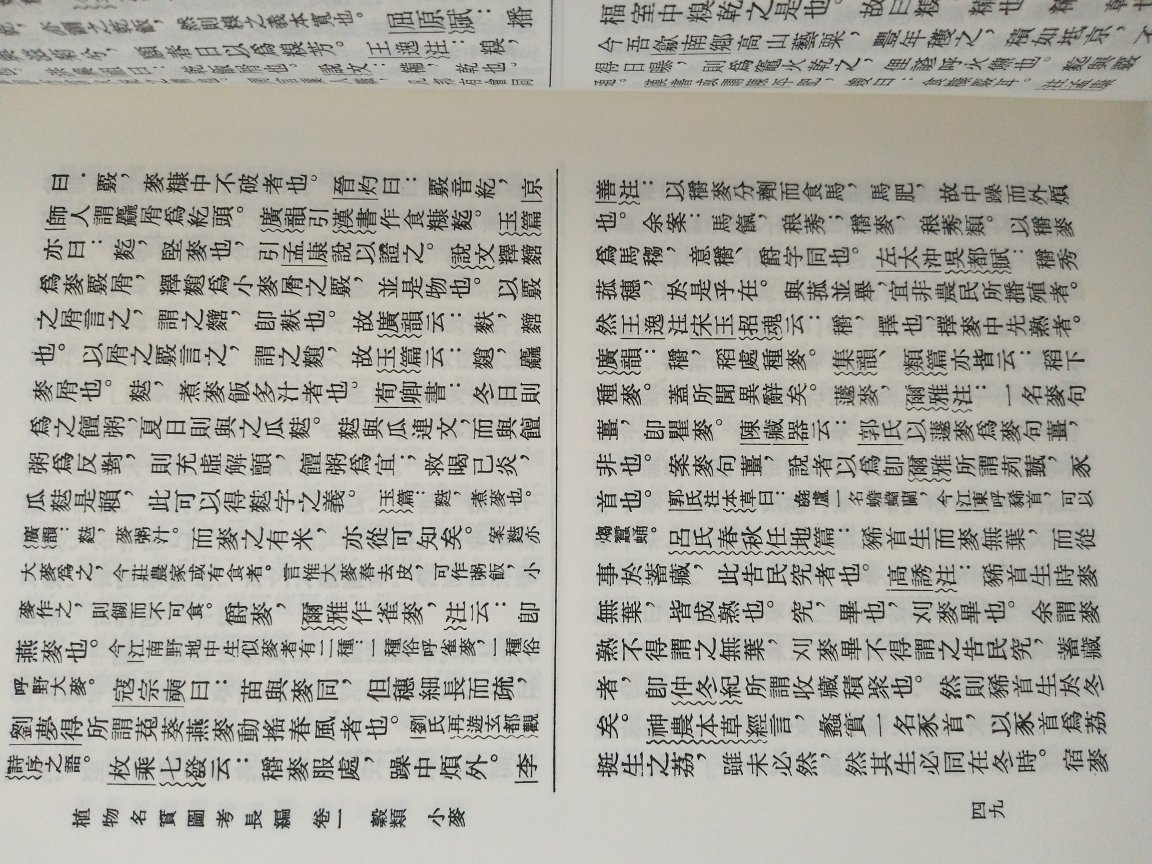 屈原賦：播
王逸注：糗，
福室中糗乾之是也。故曰糗，
今吾歙南鄉高山藝粟，豐年穫之，積如坻京，
得日曝，則爲竈火乾之，俚諺呼火焦也。
曰：覈，麥糠中不破者也。晉灼曰：覈音紇，京
師人謂麤屑爲紇頭。廣韻引漢書作食糠麧。玉篇
亦曰：麧，堅麥也，引孟康說以證之。說文釋䴬
爲麥覈屑，釋䴰爲小麥屑之覈，並是物也。以覈
之屑言之，謂之䴬，卽麩也。故廣韻云：麩，䴬
也。以屑之覈言之，謂之䴰，故玉篇云：䴰，麤
麥屑也。麮，煮麥飯多汁者也。荀卿書：冬日則
爲之饘粥，夏日則與之瓜麮。麮與瓜連文，而與饘
粥爲反對，則充虛解顫，饘粥爲宜；救暍已炎，
瓜麮是賴，此可以得麮字之義。玉篇：麮，煮麥也。
廣韻：麮，麥粥汁。而麥之有米，亦從可知矣。案麮亦
大麥爲之，今莊農家或有食者。言惟大麥舂去皮，可作粥飯，小
麥作之，則餬而不可食。爵麥，爾雅作雀麥，注云：卽
燕麥也。今江南野地中生似麥者有二種：一種俗呼雀麥，一種俗
呼野大麥。寇宗奭曰：苗與麥同，但穗細長而疏，
劉夢得所謂菟葵燕麥動搖春風者也。劉氏再遊玄都觀
詩序之語。枚乘七發云：穱麥服處，躁中煩外。李
植物名實圖考長編　卷一　穀類　小麥
善注：以穱麥分劑而食馬，馬肥，故中躁而外煩
也。余案：馬氣，稂莠；穱麥，稂莠類。以穱麥
爲馬穱，意穱、爵字同也。左太沖吳都賦：穱秀
菰穗，於是乎在。與菰並舉，宜非農民所播殖者。
然王逸注宋玉招魂云：穱，擇也，擇麥中先熟者。
廣韻：穱，稻處種麥。集韻、類篇亦皆云：稻下
種麥。蓋所聞異辭矣。蘧麥，爾雅注：一名麥句
薑，卽瞿麥。陳藏器云：郭氏以蘧麥爲麥句薑，
非也。案麥句薑，說者以爲卽爾雅所謂茢薽，豕
首也。郭氏注本草曰：彘盧一名蟾蠩蘭，今江東呼豨首，可以
㷅蠶蛹。呂氏春秋任地篇：豨首生而麥無葉，而從
事於蓄藏，此告民究者也。高誘注：豨首生時麥
無葉，皆成熟也。究，畢也，刈麥畢也。余謂麥
熟不得謂之無葉，刈麥畢不得謂之告民究，蓄藏
者，卽仲冬紀所謂收藏積聚也。然則豨首生於冬
矣。神農本草經言，蠡實一名豕首，以豕首爲荔
挺生之荔，雖未必然，然其生必同在冬時。宿麥
四九